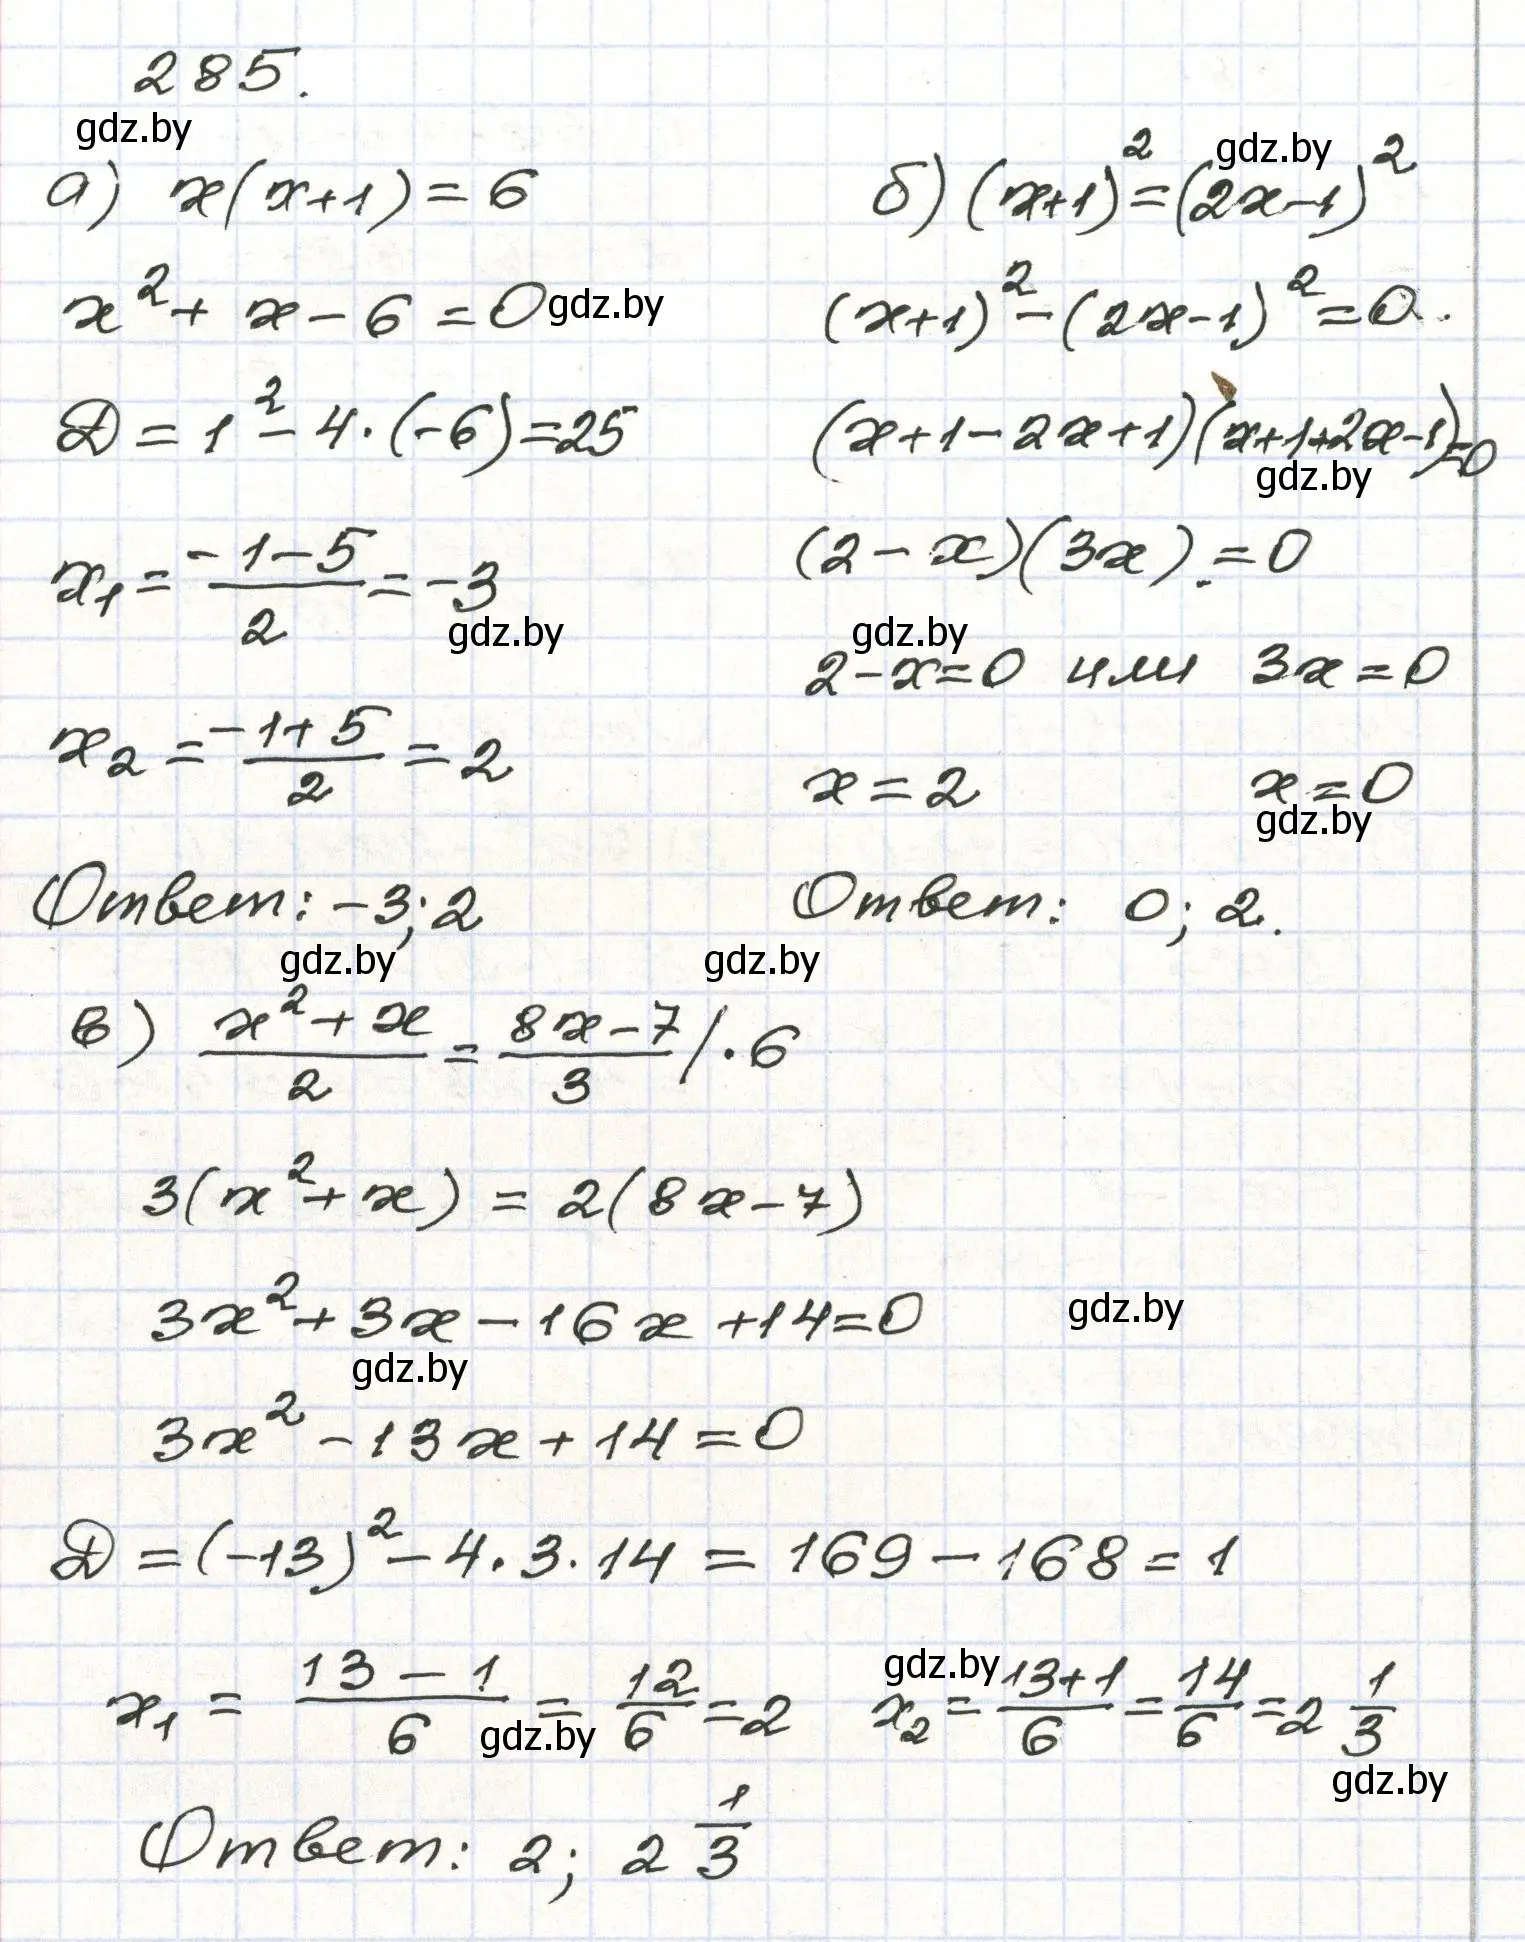 285.
gdz.by
а) x(x+1) = 6
x² + x - 6 = 0 gdz.by
D = 1² - 4·(-6) = 25
x₁ = (-1-5)/2 = -3
gdz.by
x₂ = (-1+5)/2 = 2
Ответ: -3; 2
gdz.by
gdz.by
б) (x+1)² = (2x-1)²
(x+1)² - (2x-1)² = 0.
(x+1-2x+1)(x+1+2x-1)=0
gdz.by
(2-x)(3x).=0
gdz.by
2-x=0 или 3x=0
x=2 x=0
gdz.by
Ответ: 0; 2.
gdz.by
в) (x²+x)/2 = (8x-7)/3 /·6
3(x²+x) = 2(8x-7)
3x²+3x-16x+14=0
gdz.by
gdz.by
3x²-13x+14=0
D=(-13)²-4·3·14=169-168=1
x₁ = (13-1)/6 = 12/6 = 2 x₂ = (13+1)/6 = 14/6 = 2 1/3
gdz.by
gdz.by
gdz.by
Ответ: 2; 2 1/3